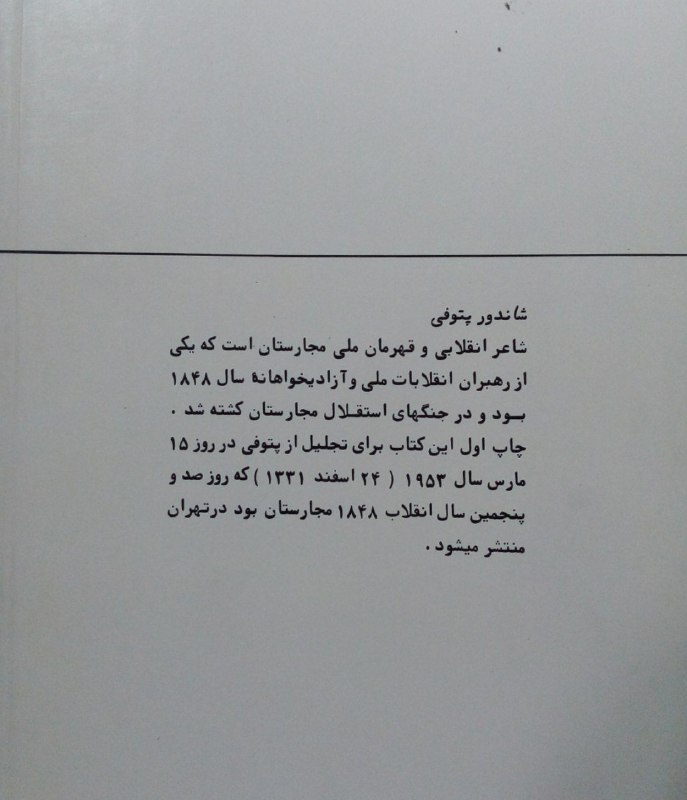 شاندور پتوفی
شاعر انقلابی و قهرمان ملی مجارستان است که یکی
از رهبران انقلابات ملی و آزادیخواهانهٔ سال ۱۸۴۸
بود و در جنگهای استقلال مجارستان کشته شد .
چاپ اول این کتاب برای تجلیل از پتوفی در روز ۱۵
مارس سال ۱۹۵۳ ( ۲۴ اسفند ۱۳۳۱ ) که روز صد و
پنجمین سال انقلاب ۱۸۴۸ مجارستان بود در تهران
منتشر میشود .